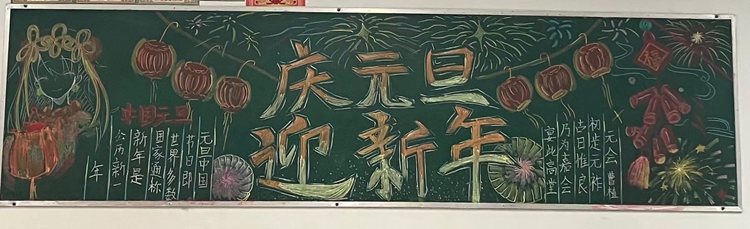 庆元旦
迎新年
中国元旦
元旦中国
节日即
世界多数
国家通称
新年是
公历新一
年
元会 曹植
初岁元祚
吉日惟良
乃为嘉会
宴此高堂